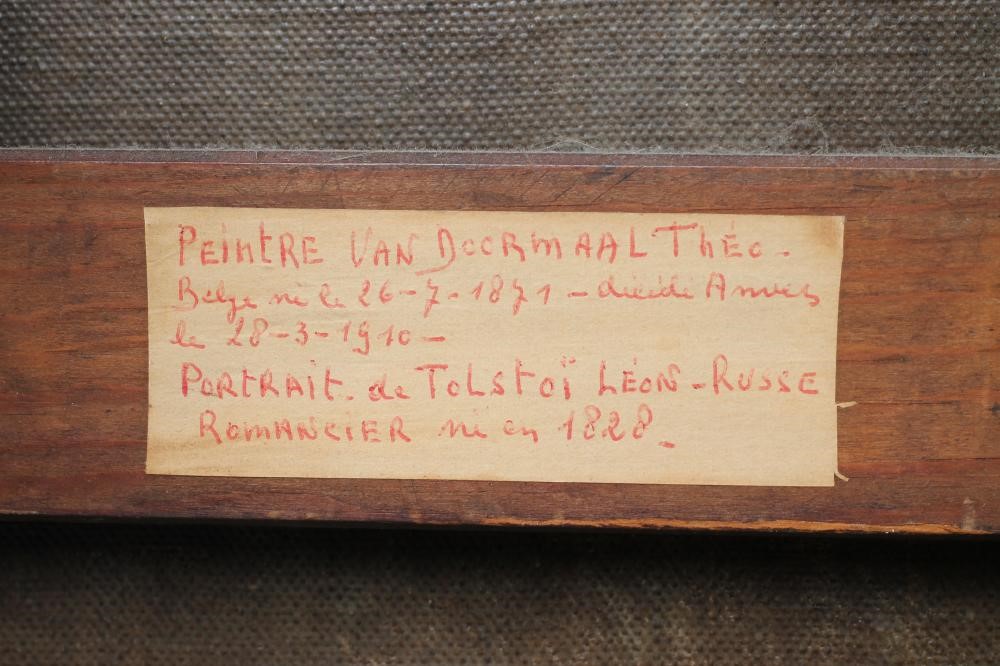 PEINTRE VAN DOORMAAL THÉO-
Belge né le 26-7-1871 - décédé Anvers
le 28-3-1910-
PORTRAIT. de TOLSTOÏ LÉON-RUSSE
ROMANCIER né en 1828_